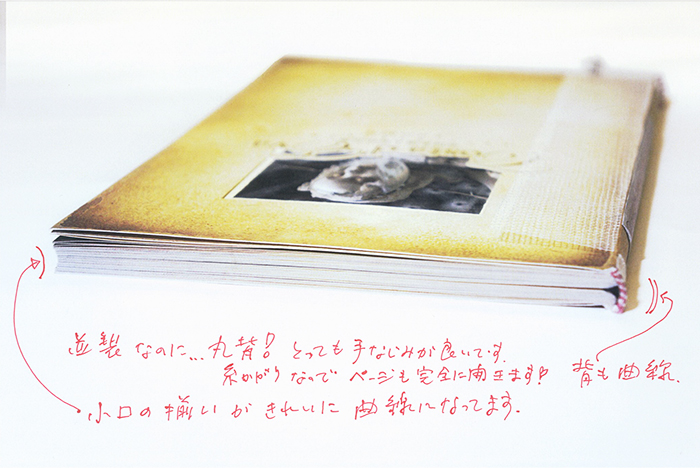 並製なのに...丸背!とっても手なじみが良いです.
糸かがりなので ページも完全に開きます!
背も曲線.
小口の揃いがきれいに曲線になってます.